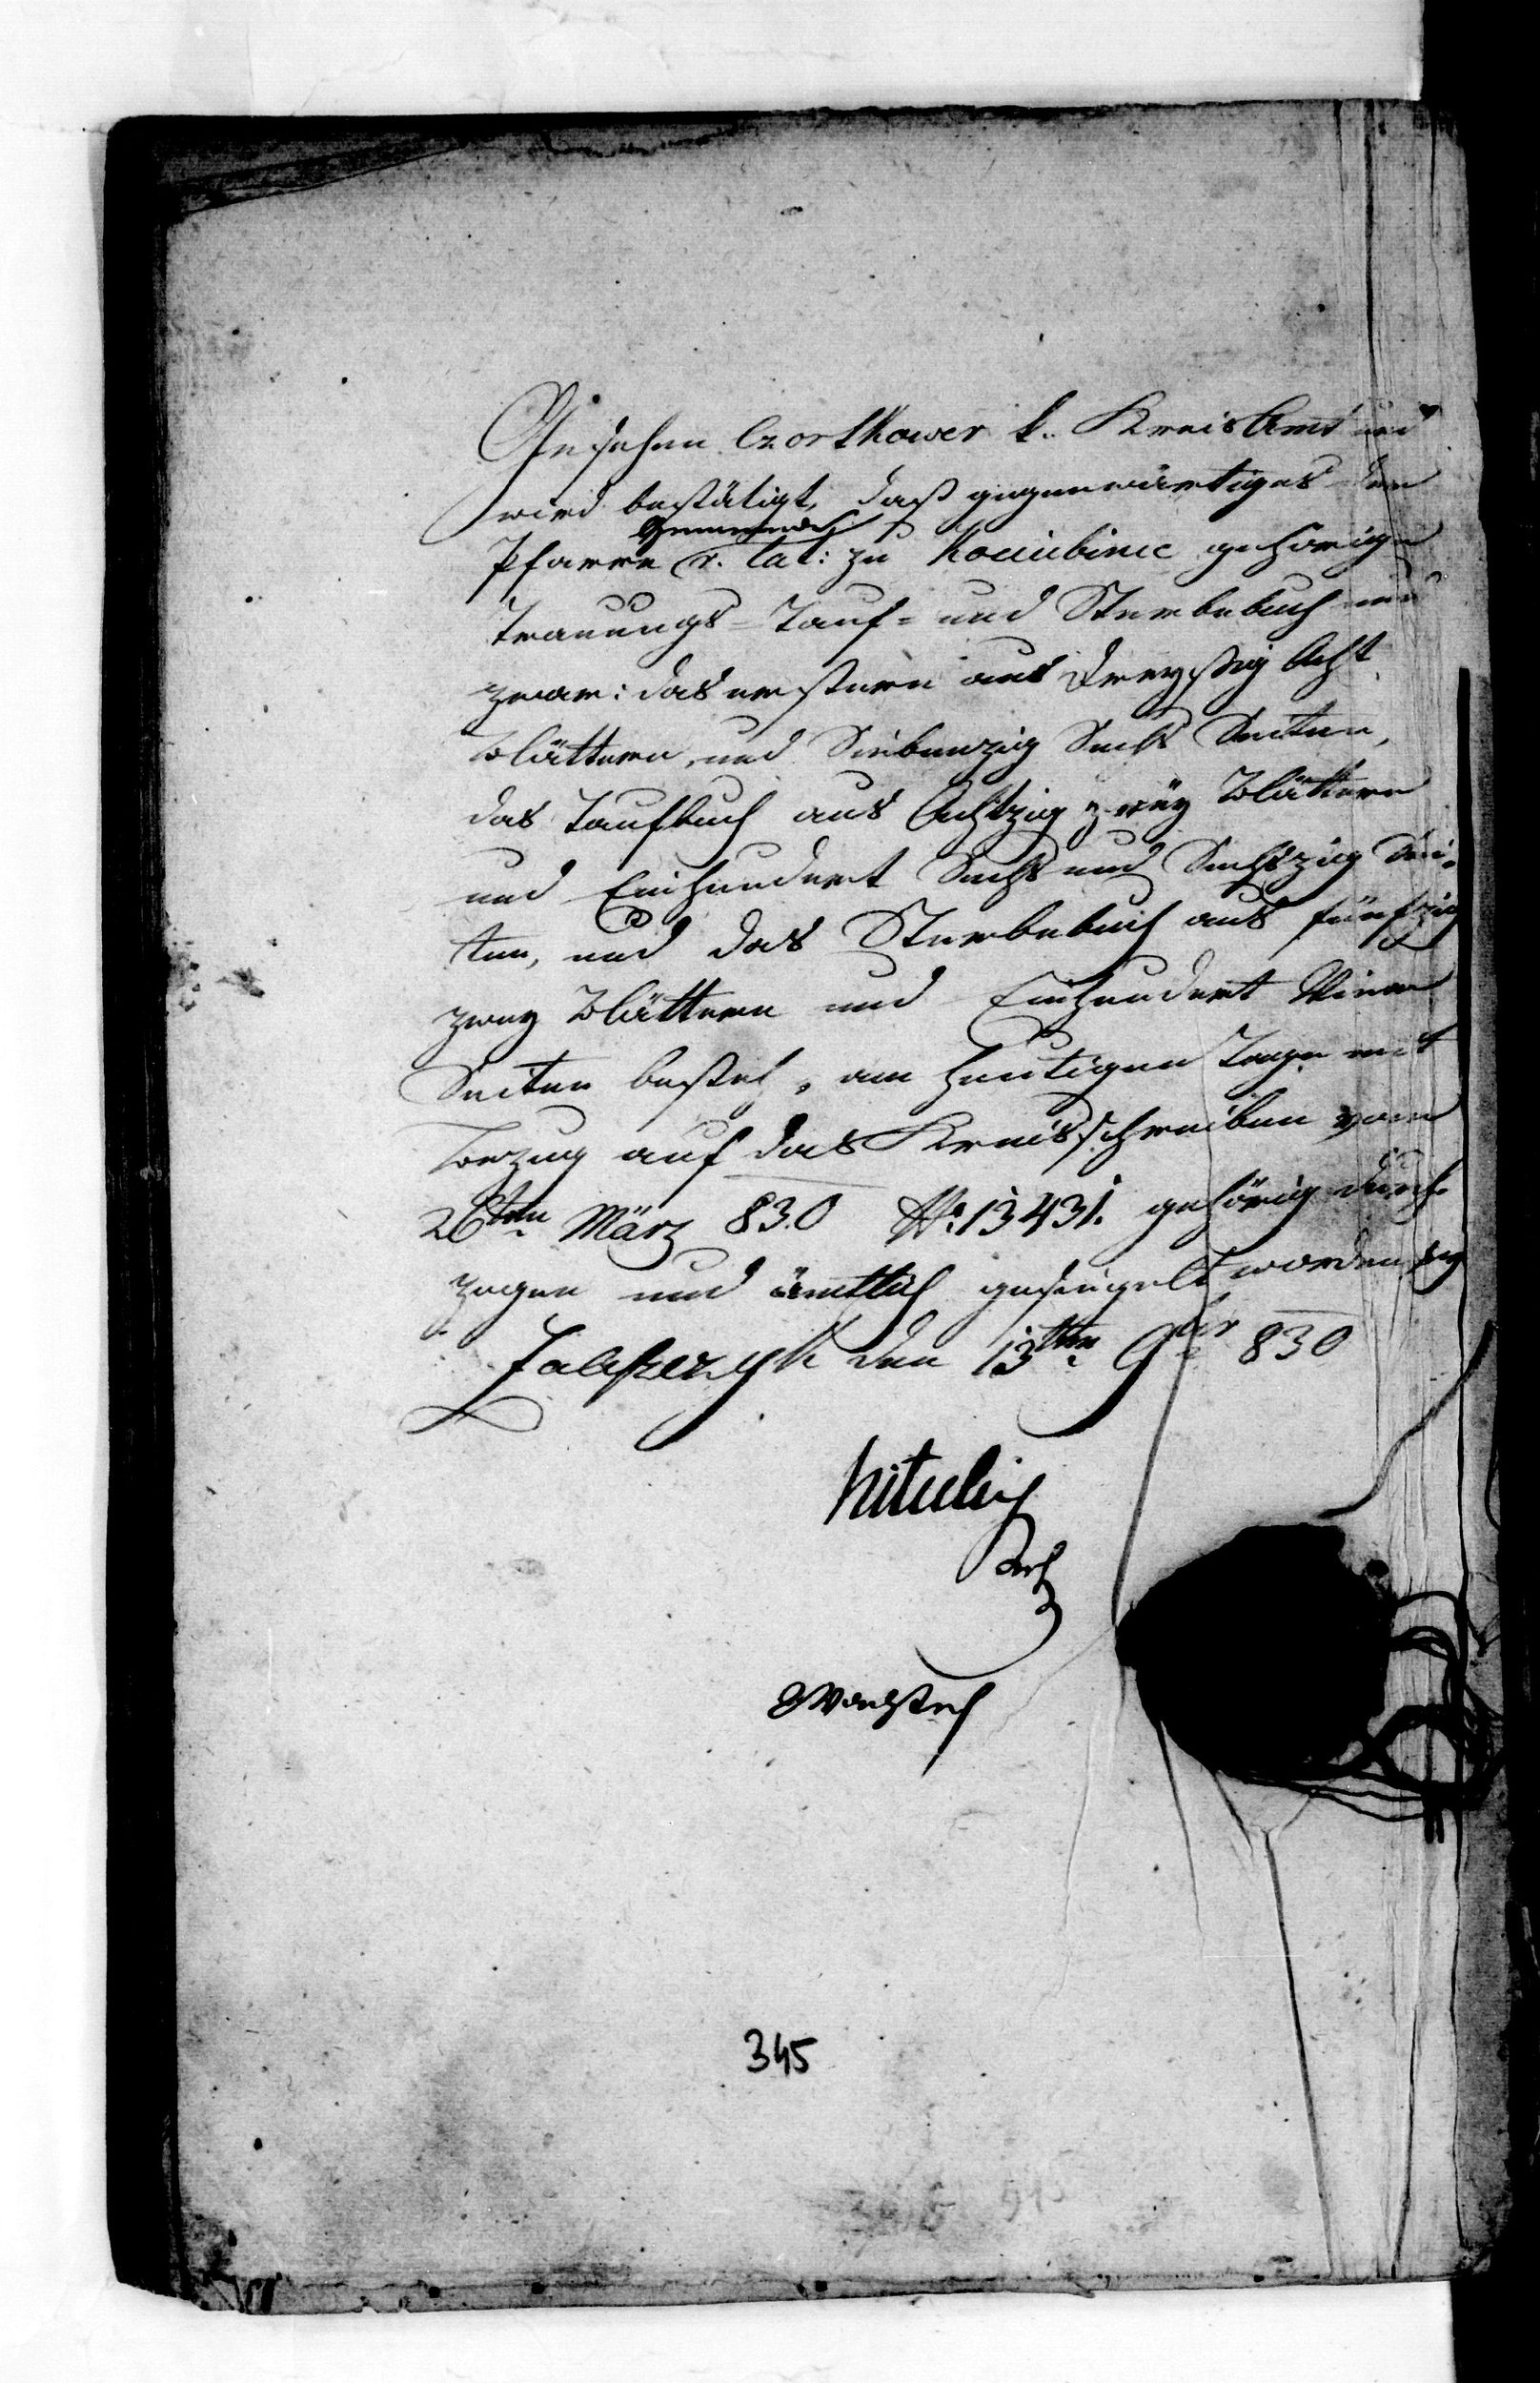 Gesehen Czortkower k. Kreisamt und
wird bestätigt, daß gegenwärtiges der
Pfarre r. lat: zu Kociubince gehörige
Trauungs- Tauf- und Sterbebuch und
zwar: das erstere aus Dreyßig Acht
Blättern, und Siebenzig Sechs Seiten,
das Taufbuch aus Achtzig zwey Blättern
und Einhundert Sechs und Sechszig Sei-
ten, und das Sterbebuch aus fünfzig
zwey Blättern und Einhundert Vier
Seiten besteh, am heutigen Tage mit
Bezug auf das Kreisschreiben vom
26ten März 830 No 13431. gehörig durch
zogen und ämtlich gesiegelt worden sey
Zaleszczyk den 13ten 9br 830
345